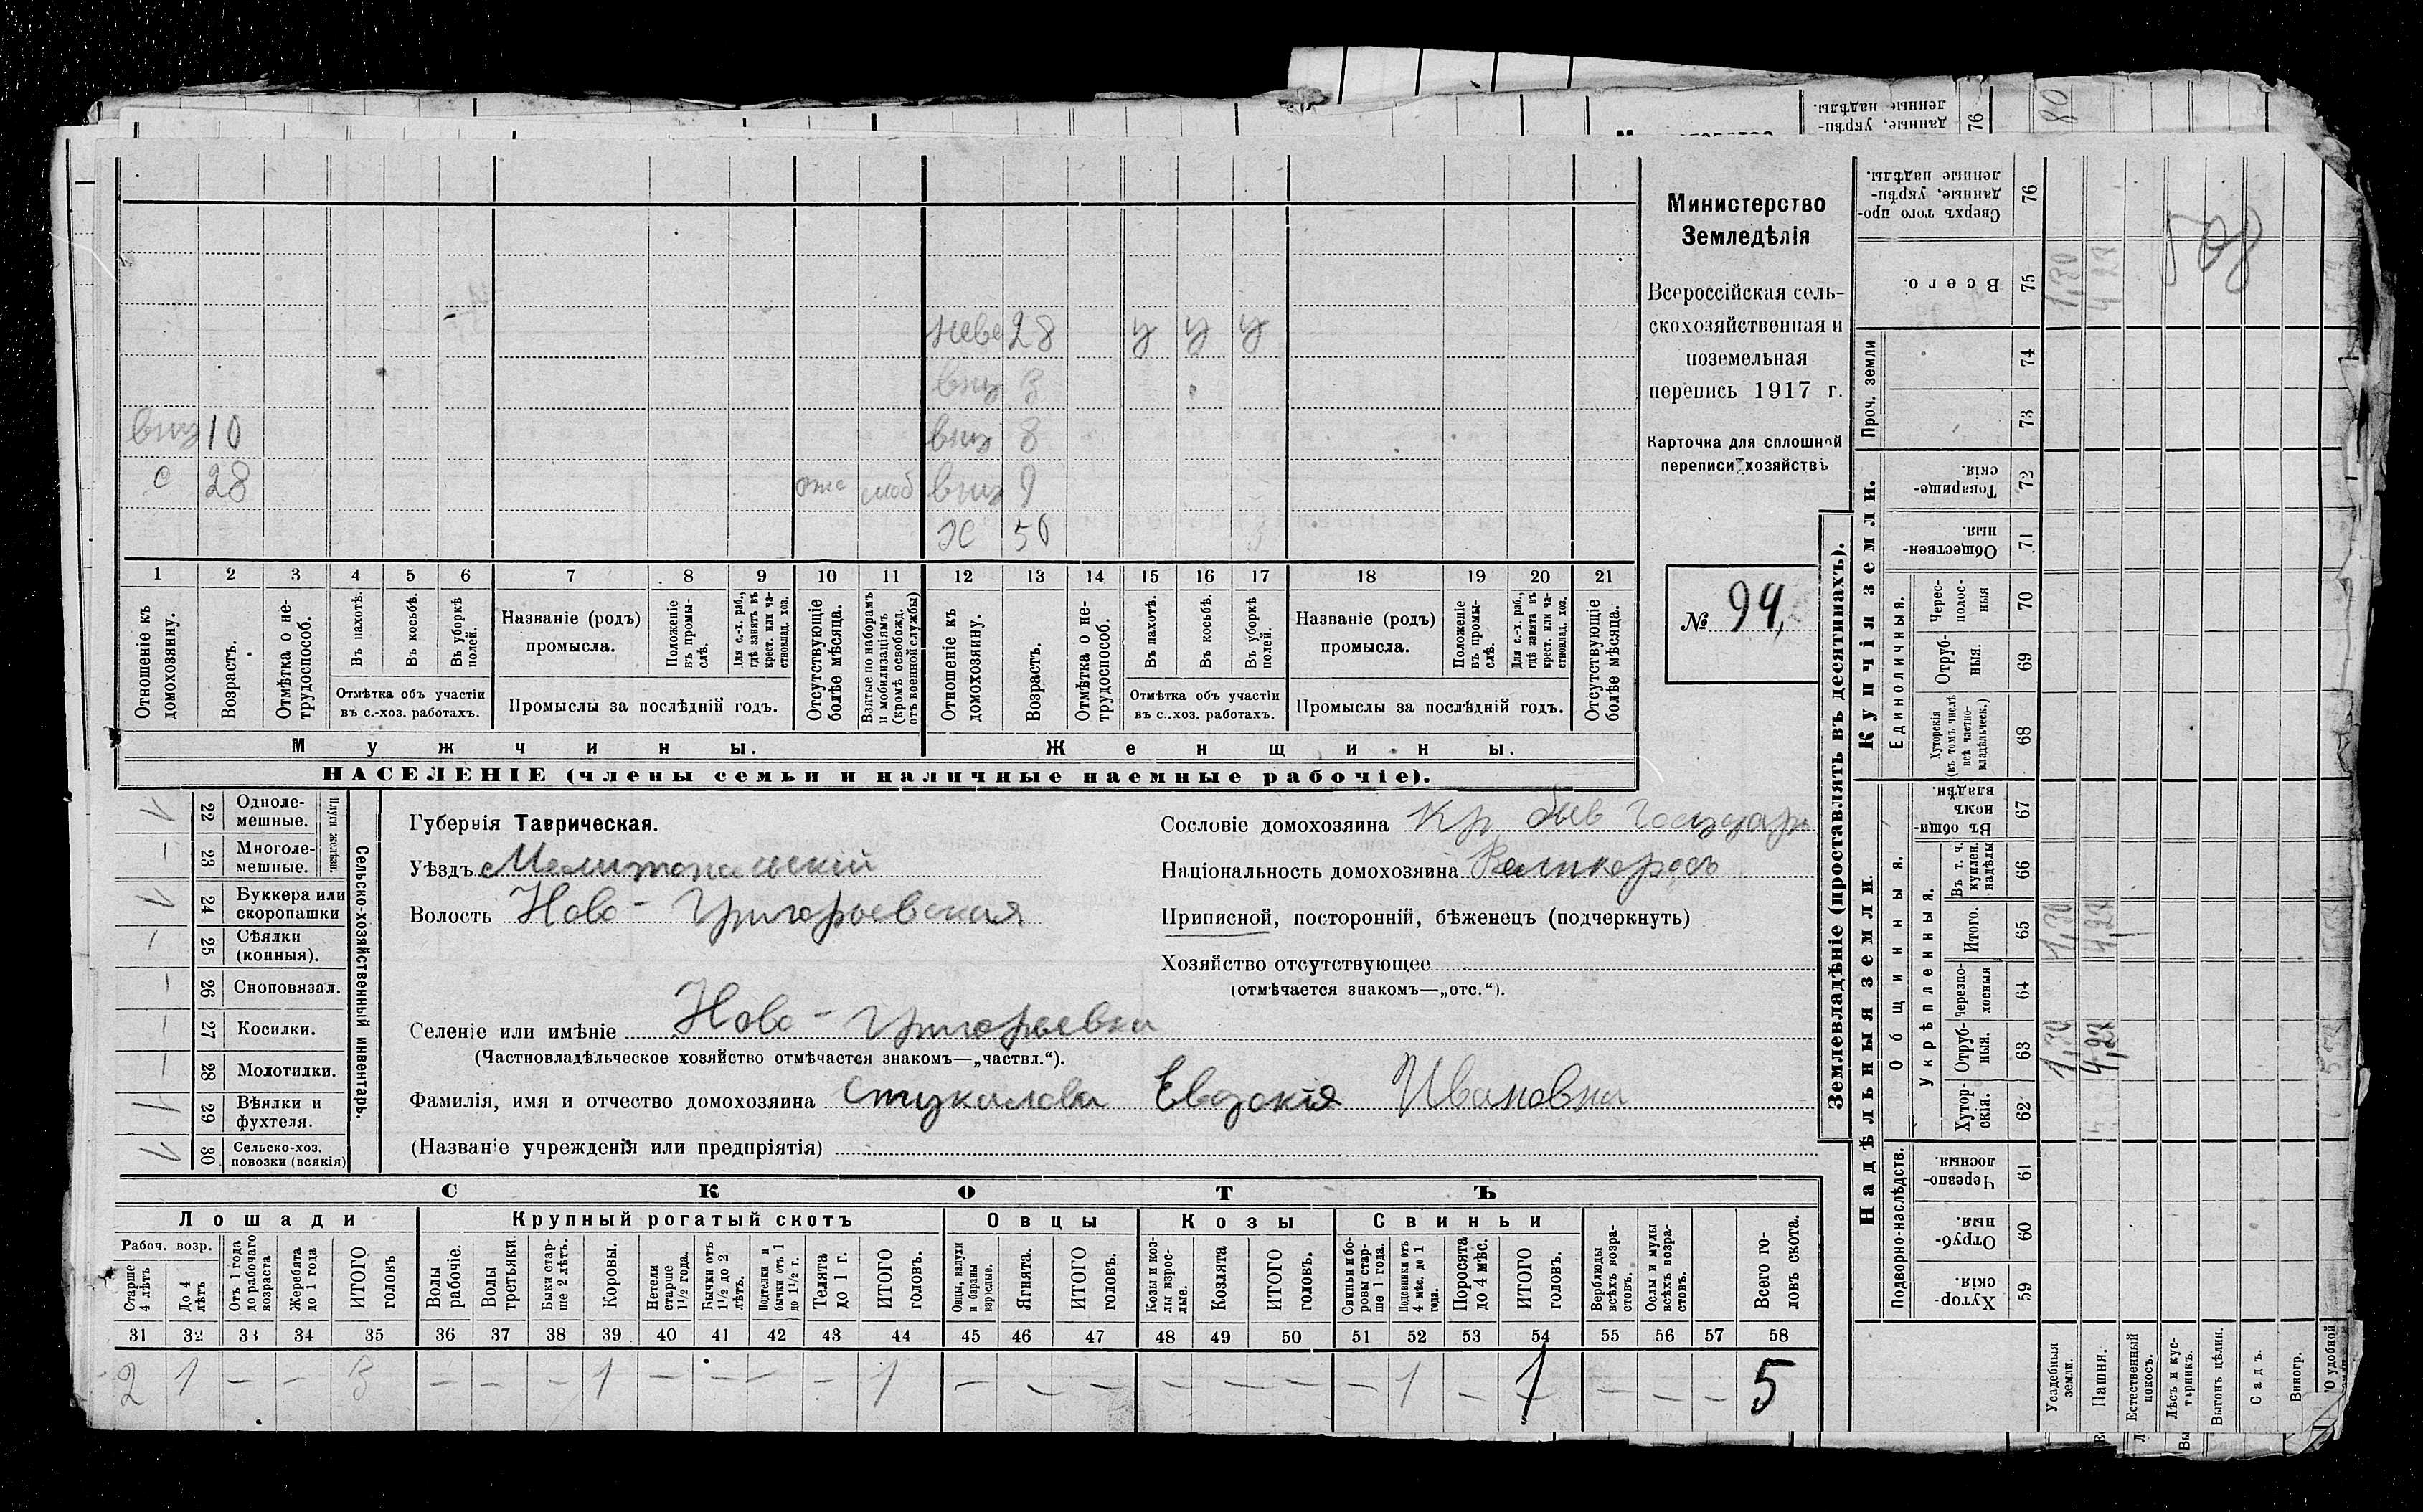 неве 28 у у у
вну 3
вну 10 вну 8
с 28 моб вну 9
Ж 50
1 2 3 4 5 6 7 8 9 10 11 12 13 14 15 16 17 18 19 20 21
Отношеніе къ домохозяину.
Возрастъ.
Отмѣтка о не-трудоспособ.
Въ пахотѣ.
Въ косьбѣ.
Въ уборкѣ полей.
Отмѣтка объ участіи
въ с.-хоз. работахъ.
Названіе (родъ)
промысла.
Положеніе въ промы-слѣ.
Для с.-х. раб., гдѣ занятъ въ крест. или ча-стновлад. хоз.
Промыслы за послѣдній годъ.
Отсутствующіе болѣе мѣсяца.
Взятые по наборамъ и мобилизаціямъ (кромѣ освобожд. отъ военной службы)
Отношеніе къ домохозяину.
Возрастъ.
Отмѣтка о не-трудоспособ.
Въ пахотѣ.
Въ косьбѣ.
Въ уборкѣ полей.
Отмѣтка объ участіи
въ с.-хоз. работахъ.
Названіе (родъ)
промысла.
Положеніе въ промы-слѣ.
Для с.-х. раб., гдѣ занята въ крест. или ча-стновлад. хоз.
Промыслы за послѣдній годъ.
Отсутствующіе болѣе мѣсяца.
Мужчины. Женщины.
НАСЕЛЕНІЕ (члены семьи и наличные наемные рабочіе).
Министерство
Земледѣлія
Всероссійская сель-
скохозяйственная и
поземельная
перепись 1917 г.
Карточка для сплошной
переписи хозяйствъ
№ 94,
Плуги желѣзн.
22 Одноле-мешные.
23 Многоле-мешные.
24 Буккера или скоропашки
25 Сѣялки (конныя).
26 Сноповязал.
27 Косилки.
28 Молотилки.
29 Вѣялки и фухтеля. 1
30 Сельско-хоз. повозки (всякія)
Сельско-хозяйственный инвентарь.
Губернія Таврическая.
Уѣздъ Мелитопольскій
Волость Ново-Григорьевская
Селеніе или имѣніе Ново-Григорьевка
(Частновладѣльческое хозяйство отмѣчается знакомъ—„частвл.“).
Фамилія, имя и отчество домохозяина Стукалова Евдокія Ивановна
(Названіе учрежденія или предпріятія)
Сословіе домохозяина Кр. быв Государ
Національность домохозяина Великороссъ
Приписной, посторонній, бѣженецъ (подчеркнуть)
Хозяйство отсутствующее
(отмѣчается знакомъ—„отс.“).
СКОТЪ
Лошади Крупный рогатый скотъ Овцы Козы Свиньи
Рабоч. возр.
Старше 4 лѣтъ
До 4 лѣтъ
Отъ 1 года до рабочаго возраста
Жеребята до 1 года
ИТОГО головъ
Волы рабочіе.
Волы третьяки.
Быки стар-ше 2 лѣтъ.
Коровы.
Нетели старше 1½ года.
Бычки отъ 1½ до 2 лѣтъ.
Подтелки и бычки отъ 1 до 1½ г.
Телята до 1 г.
ИТОГО головъ.
Овцы, валухи и бараны взрослые.
Ягнята.
ИТОГО головъ.
Козы и коз-лы взрос-лые.
Козлята
ИТОГО головъ.
Свиньи и бо-ровы стар-ше 1 года.
Подсвинки отъ 4 мѣс. до 1 года.
Поросята до 4 мѣс.
ИТОГО головъ.
Верблюды всѣхъ возра-стовъ.
Ослы и мулы всѣхъ возра-стовъ.
Всего го-ловъ скота.
31 32 33 34 35 36 37 38 39 40 41 42 43 44 45 46 47 48 49 50 51 52 53 54 55 56 57 58
2 1 – – 3 – – – 1 – – – – 1 – – – – – – – 1 – 1 – – – 5
Землевладѣніе (проставлять въ десятинахъ).
Надѣльныя земли. Купчія земли. Проч. земли
Подворно-наслѣдств.
Общинныя.
Укрѣпленныя.
Единоличныя.
Хутор-скія. 59
Отруб-ныя. 60
Черезпо-лосныя. 61
Хутор-скія. 62
Отруб-ныя. 63
Черезпо-лосныя 64
Итого. 65
Въ т. ч. куплен. надѣлы 66
Въ общи-номъ владѣн. 67
Хуторскія (въ томъ числѣ всѣ частно-владѣльческ.) 68
Отруб-ныя. 69
Черес-полос-ныя 70
Обществен-ныя. 71
Товарище-скія. 72
73
74
Всего. 75
Сверхъ того про-данные, укрѣп-ленные надѣлы. 76
Усадебныя земли. 1,30 1,30 1,30
Пашня. 4,22 4,22 4,22
Естественный покосъ.
Лѣсъ и кус-тарникъ.
Выгонъ цѣлин.
Садъ.
Виногр.
598
данные, укрѣп-ленные надѣлы. 76
80